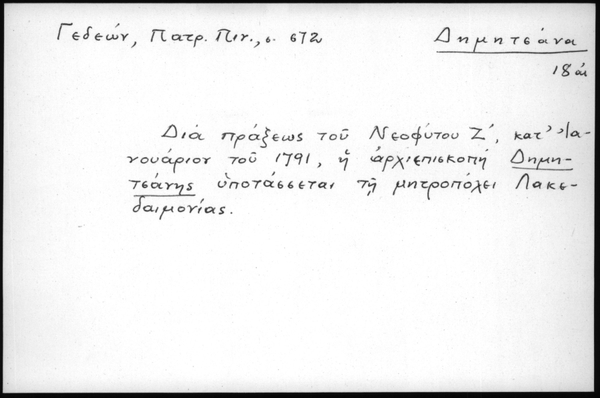 Γεδεών, Πατρ. Πιν., σ. 672
Δημητσάνα
18 αἰ
Διὰ πράξεως τοῦ Νεοφύτου Ζ', κατ' Ἰα-
νουάριον τοῦ 1791, ἡ ἀρχιεπισκοπὴ Δημη-
τσάνης ὑποτάσσεται τῇ μητροπόλει Λακε-
δαιμονίας.